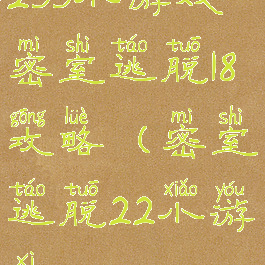 mì shì táo tuō
密室逃脱18
gōng lüè mì shì
攻略（密室
táo tuō xiǎo yóu
逃脱22小游
xì